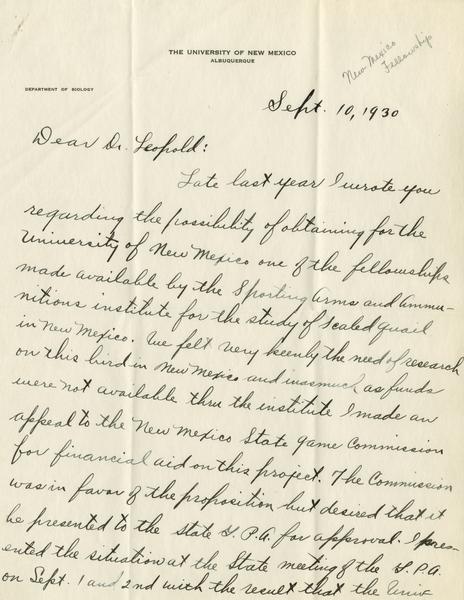 THE UNIVERSITY OF NEW MEXICO
ALBUQUERQUE
New Mexico
Fellowship
DEPARTMENT OF BIOLOGY
Sept. 10, 1930
Dear Dr. Leopold:
Late last year I wrote you
regarding the possibility of obtaining for the
University of New Mexico one of the fellowships
made available by the Sporting Arms and Ammu-
nitions institute for the study of scaled quail
in New Mexico. We felt very keenly the need of research
on this bird in New Mexico and inasmuch as funds
were not available thru the institute I made an
appeal to the New Mexico State Game Commission
for financial aid on this project. The Commission
was in favor of the proposition but desired that it
be presented to the State G.P.A. for approval. I pres-
ented the situation at the State meeting of the G.P.A.
on Sept. 1 and 2nd with the result that the Univ